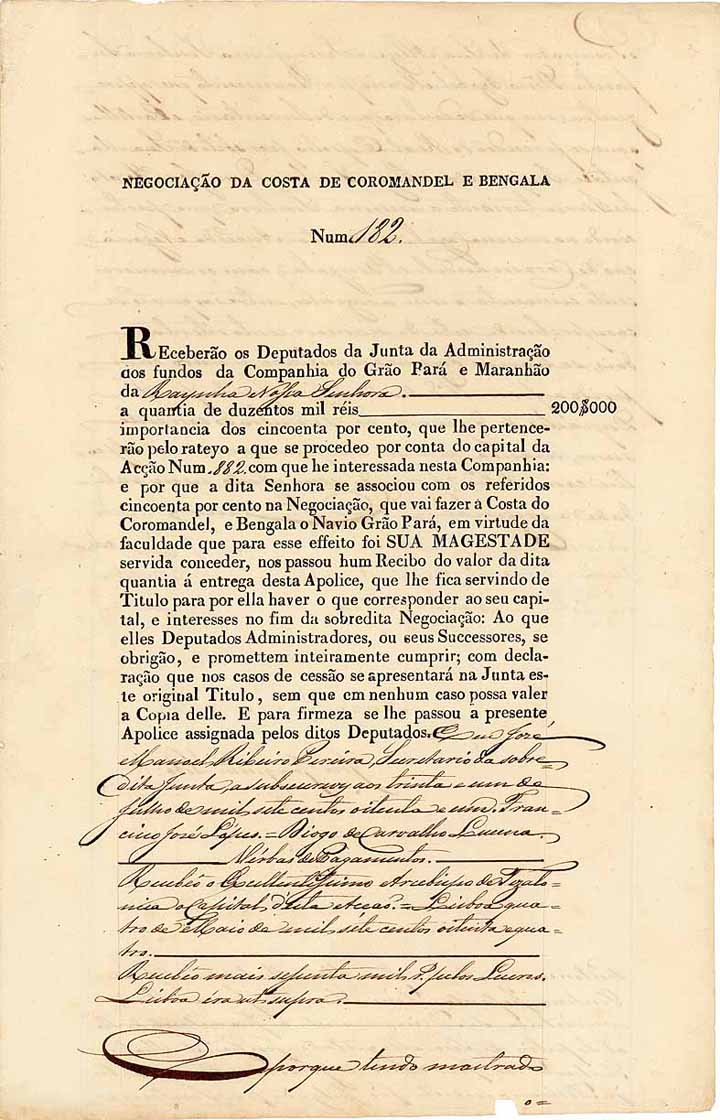 NEGOCIAÇÃO DA COSTA DE COROMANDEL E BENGALA
Num. 182.
REceberão os Deputados da Junta da Administração
dos fundos da Companhia do Grão Pará e Maranhão
da Raynha Nossa Senhora.
a quantia de duzentos mil réis 200$000
importancia dos cincoenta por cento, que lhe pertence-
rão pelo rateyo a que se procedeo por conta do capital da
Acção Num. 882. com que he interessada nesta Companhia:
e por que a dita Senhora se associou com os referidos
cincoenta por cento na Negociação, que vai fazer à Costa do
Coromandel, e Bengala o Navio Grão Pará, em virtude da
faculdade que para esse effeito foi SUA MAGESTADE
servida conceder, nos passou hum Recibo do valor da dita
quantia á entrega desta Apolice, que lhe fica servindo de
Titulo para por ella haver o que corresponder ao seu capi-
tal, e interesses no fim da sobredita Negociação: Ao que
elles Deputados Administradores, ou seus Successores, se
obrigão, e promettem inteiramente cumprir; com decla-
ração que nos casos de cessão se apresentará na Junta es-
te original Titulo, sem que em nenhum caso possa valer
a Copia delle. E para firmeza se lhe passou a presente
Apolice assignada pelos ditos Deputados. E eu José
Manoel Ribeiro Pereira, Secretario da sobre=
dita Junta, a subscrevy aos trinta e um de
Julho de mil sete centos oitenta e um. Fran=
cisco José Lopes. = Diogo de Carvalho Lucena.
Vérbas de Pagamentos.
Recebéo o Excellentissimo Arcebispo de Tezalo=
nica o Capital d'esta Acção. = Lisboa qua=
tro de Maio de mil séte centos oitenta e qua=
tro.
Recebéo mais sepenta mil r.s pelos Lucros.
Lisboa éra ut supra.
E porque tendo mostrado
o =